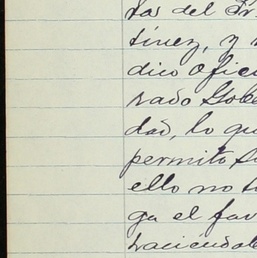 ras del Sr
tinez, y
dico Ofici
rado Gobe
dad, lo qu
permito su
ello no
ga el fav
haciéndol